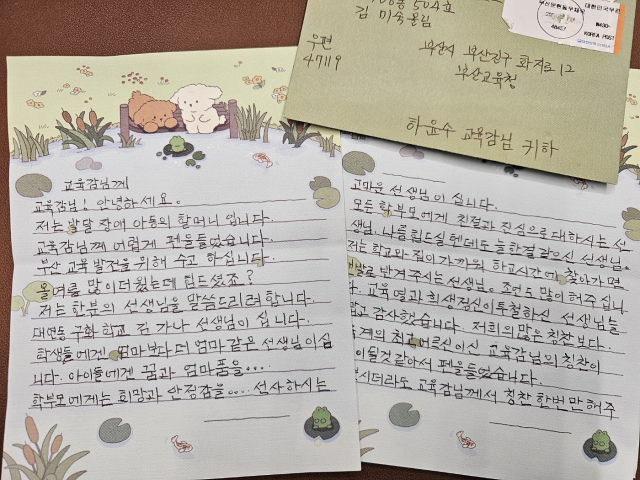 504호
김 미숙 올림
우편
47119
부산시 부산진구 화지로 12
부산교육청
하윤수 교육감님 귀하
대한민국우편
KOREA POST
교육감님께
교육감님! 안녕하세요.
저는 발달 장애 아동의 할머니 입니다.
교육감님께 어렵게 펜을들었습니다.
부산 교육발전을 위해 수고 하십니다.
올여름 많이더웠는데 힘드셨죠?
저는 한분의 선생님을 말씀드리려 합니다.
대연동 구화 학교 김 가나 선생님이 십니다.
학생들에겐 엄마보다더 엄마같은 선생님이십
니다. 아이들에겐 꿈과 엄마품을...
학부모에게는 희망과 안정감을... 선사하시는
고마운 선생님이 십니다.
모든 학부모에게 친절과 진심으로 대하시는 선
님. 나름힘드실텐데도 늘한결같으신 선생님.
저는 학교와 집이가까워 하교시간에 찾아가면
반겨주시는 선생님. 조언도 많이해주십
교육열과 희생정신이투철하신 선생님들
감사했습니다. 저희의많은 칭찬보다.
계의 최고어른이신 교육감님의 칭찬이
이될것같아서 펜을들었습니다.
시더라도 교육감님께서 칭찬 한번만해주